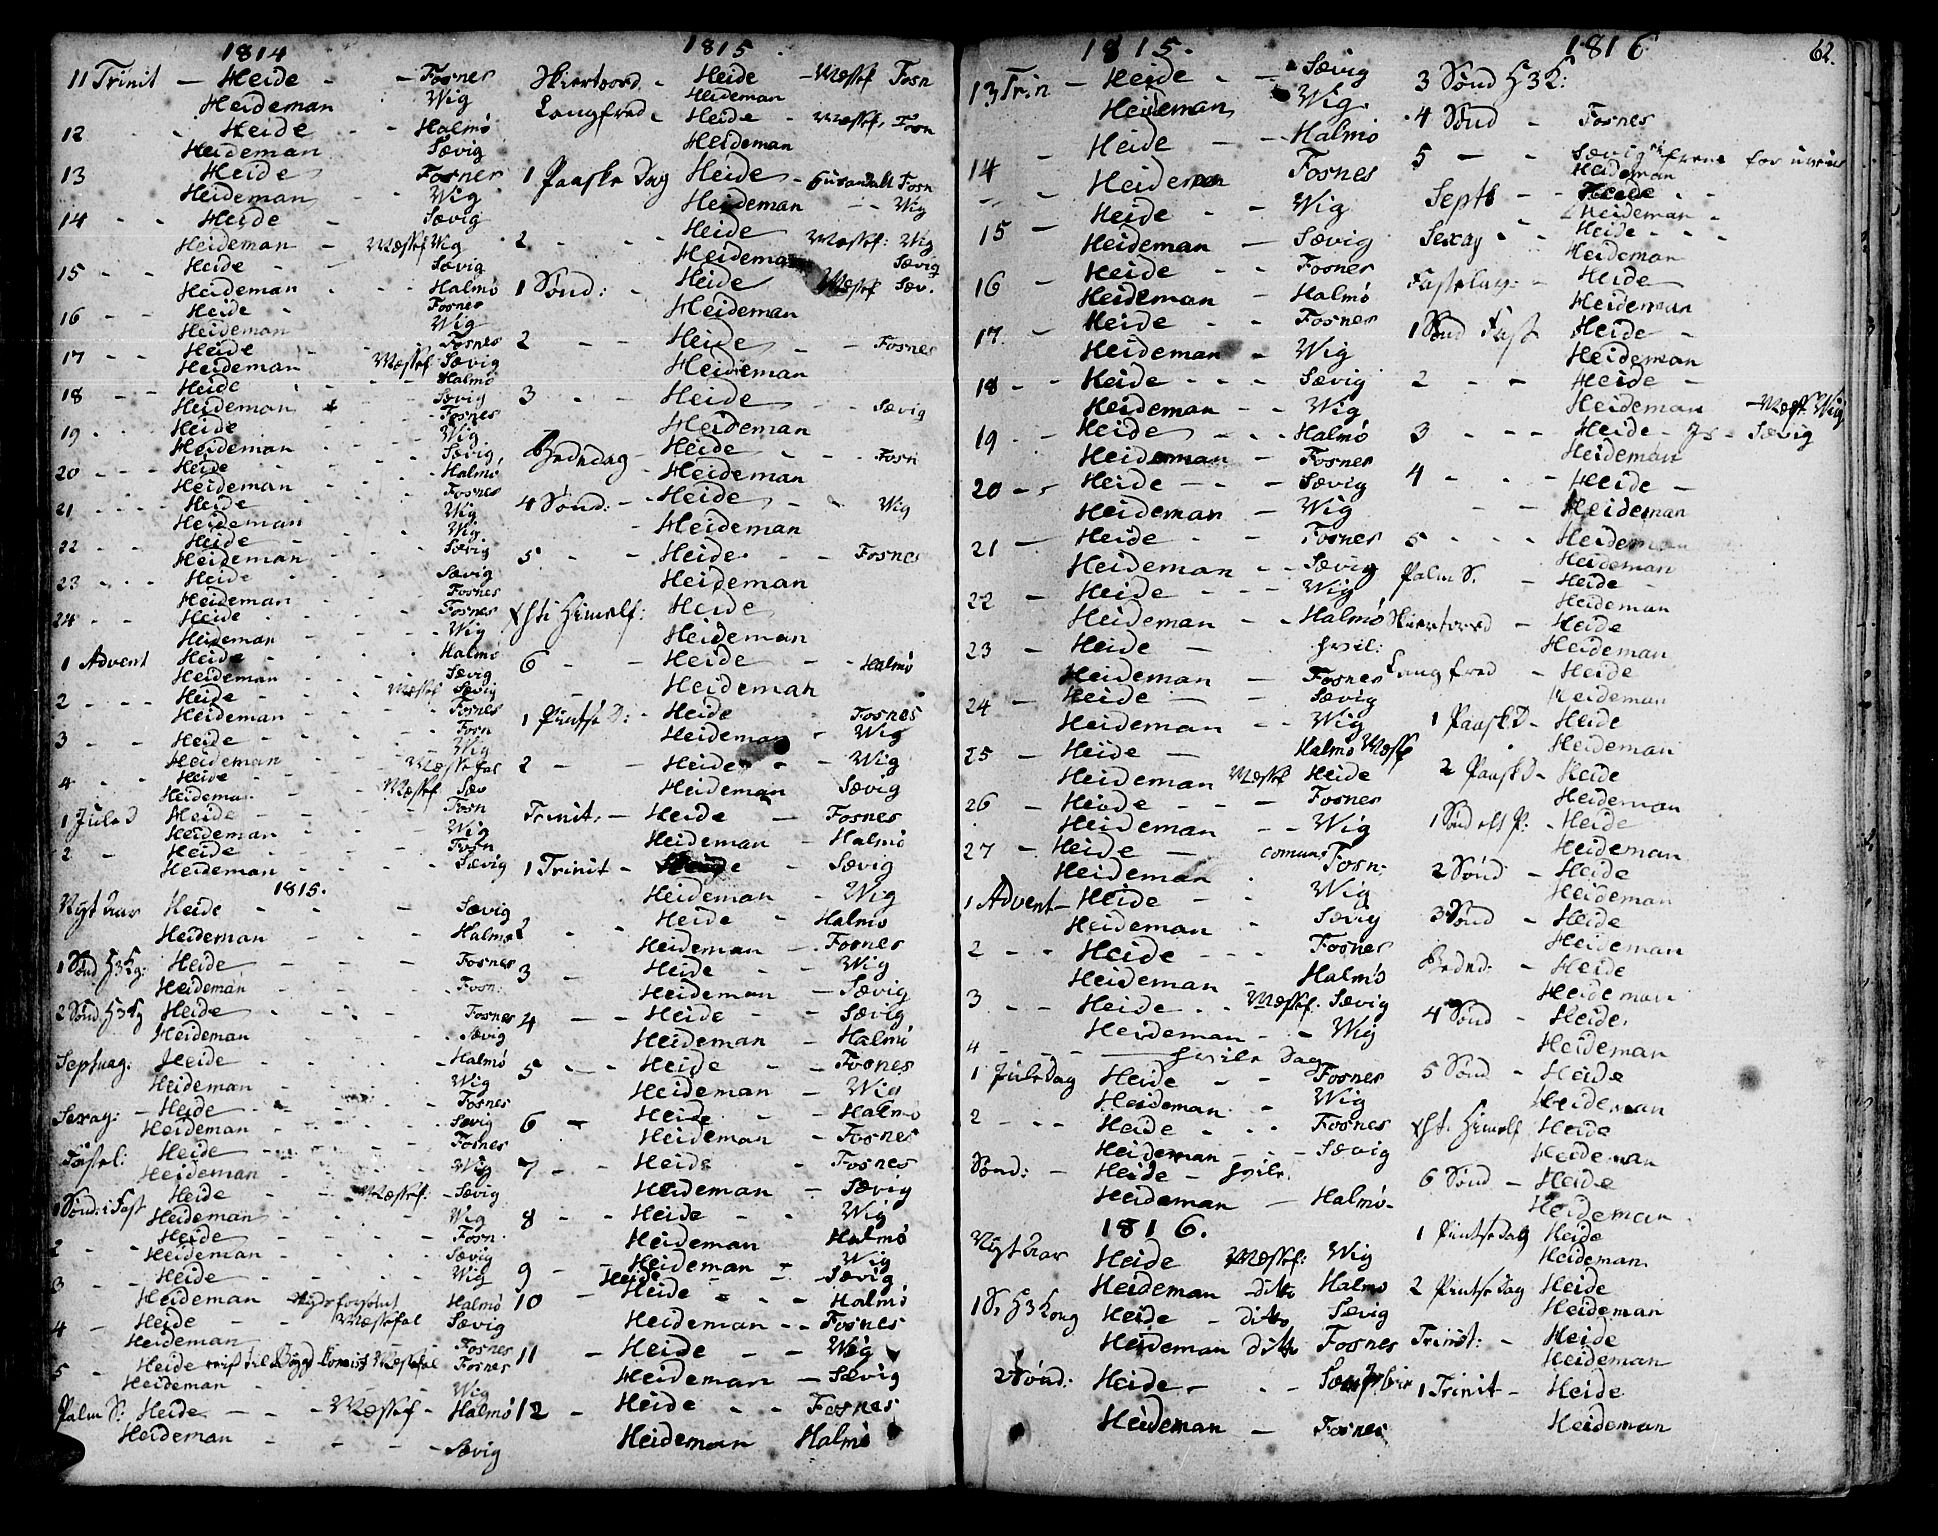 1814
11 Trinit - Heide - - Fosnes
Heideman - Wig
12 - - Heide - - Halmø
Heideman Sævig
13 Heide Fosnes
Heideman - - Wig
14 - - Heide - Sævig
Heideman - Messef Wig
15 - - Heide - - Sævig
Heideman - - - Halmø
16 - - Heide - Fosnes
Heideman Wig
17 - - Heide - - Fosnes
Heideman Messef Sævig
18 - - Heide - - - Halmø
Heideman - - Sævig
19 - - Heide - - - Fosnes
Heideman - - - Wig
20 - - Heide - - - Sævig
Heideman - - - Halmø
21 - - - Heide - - - Fosnes
Heideman - - Wig
22 - - Heide - - - Wig
Heideman - - - Sævig
23 - - - Heide - - - Sævig
Heideman - - - Fosnes
24 - - Heide - - - Fosnes
Heideman - - - Wig
1 Advent Heide - - - Halmø
Heideman - - - Sævig
2 - - - Heide - - Messef Sævig
Heideman - - - Fosnes
3 - - Heide - - - Fosn
Heideman - - - Wig
4 - - Heide - - - Messefal
Heideman - - Messef Sæv
1 Jule D Heide - - - Fosn
Heideman - - - Wig
2 - Heide - - - Fosn
Heideman - - - Sævig
1815.
Nyt Aar Heide - - Sævig
Heideman - - - Halmø
1 Sønd H3Kg: Heide - - - Fosnes
Heideman - - - Fosn:
2 Sønd H3Kg Heide - - - Fosnes
Heideman - - Sævig
Septuag: Heide - - - Halmø
Heideman - - - Wig
Sexag: - Heide - - - Fosnes
Heideman - - - Sævig
Fastel: Heide - - - Fosnes
Heideman - - - Wig
1 Sønd: i Fast Heide - - Messef: - Sævig
Heideman - - - Wig
2 - - Heide - - - Fosn.
Heideman - - - Sævig
3 - - Heide - - - Wig
Heideman Halmø
4 - Heide - - Messefal Sævig
Heideman - - - Fosnes
5 - Heide Messefal Fosnes
Heideman - - Wig
Palm S: Heide - - - Messef - Halmø
Heideman - - - Sævig
1815.
Skiertorsd. - Heide - Messef Fosn
Heideman
Langfred. Heide - Messef. Fosn
Heideman
1 Paaske Dag Heide - Fosn
Heideman - - Wig
2 - - - Heide Messef: Wig
Heideman Sævig
1 Sønd: - Heide Messef Sæv.
Heideman
2 - - Heide - - Fosnes
Heideman
3 - - Heide - - Sævig
Heideman
Bededag - Heide - - - Fosn
Heideman
4 Sønd: - - Heide - - Wig
- Heideman
5 - - Heide - - - Fosnes
Heideman
Chti Himelf: Heide
Heideman
6 - - Heide - - Halmø
Heideman
1 Pintse D: - Heide - Fosnes
Heideman - Wig
2 - - Heide - - Wig
Heideman Sævig
Trinit: - Heide - Fosnes
Heideman - Halmø
1 Trinit - Heide - Sævig
Heideman - Wig
2 - - Heide - Halmø
Heideman - Fosnes
3 - - Heide - - Wig
Heideman - Sævig
4 - - Heide - - Sævig
Heideman - Halmø
5 - - Heide - - Fosnes
Heideman - Wig
6 - Heide - - Halmø
Heideman - Fosnes
7 - - Heide - Fosnes
Heideman - Sævig
8 - - Heide - - Wig
Heideman Halmø
9 - - Heideman - Wig
Heide - - Sævig
10 - Heide - - - Halmø
Heideman - - Fosnes
11 - Heide - - Wig
Heideman - Sævig
12 - Heide - - Fosnes
Heideman Halmø
1815.
13 Trin - Heide - - Sævig
Heideman - Wig
- Heide - - Halmø
14 - Heideman Fosnes
- - Heide - - Wig
15 - Heideman - Sævig
Heide - - Fosnes
16 - Heideman - Halmø
Heide - - Fosnes
17. - Heideman - Wig
18 - - Heide - - - Sævig
Heideman - - Wig
19 - - Heide - - - Halmø
Heideman - Fosnes
20 - - Heide - - - Sævig
Heideman - Wig
21 - Heide - - - Fosnes
Heideman - - Sævig
22 - Heide - - - Wig
Heideman - Halmø
23 - Heide - hvil:
Heideman - Fosnes
24 - Heide - Sævig
Heideman - - Wig
25 - Heide - Halmø Messe
Heideman Messef Heide
26 - Heide - - - Fosnes
Heideman - - Wig
27 - Heide - comun Fosn:
Heideman . Wig
1 Advent - Heide - -
Heideman - Sævig
2 - - Heide - - - Fosnes
Heideman - Halmø
3 - - Heide - - Messef. Sævig
Heideman - - Wig
4 - - - hvile Dag
1 Jule Dag Heide - - Fosnes
Heideman - - Wig
2 - - - Heide - - - Fosnes
Heideman - - - Sævig
Sønd: - Heide - hvile.
Heideman - Halmø -
1816.
Nyt Aar Heide Messef: Wig
Heideman - ditto Halmø
1 S. H3 Kong Heide - ditto Sævig
Heideman ditto Fosnes
2 Sønd: Heide - - -
Heideman - Fosnes
1816
62.
3 Sønd H3K:
4 Sønd - Fosnes
5 - - Sævig for
Heideman
Septu - - Heide - -
Heideman -
Sexag - - Heide - - -
Heideman
Fastelag: - Heide
Heideman
1 Sønd Fast Heide -
Heideman
2 - - Heide -
Heideman - Messf. Wig
3 - - - Heide - - Sævig
Heideman
4 - - - Heide -
- - Heideman
5 - - - Heideman
Heideman
Palm S. - Heide -
Heideman
Skiertorsd - Heide
Heideman
Langfred - Heide
Heideman
1 Paask D - Heide
Heideman
2 Paask D - Heide
Heideman
1 Sønd eft P: - Heide
Heideman
2 Sønd - Heide
Heideman
3 Sønd - Heide
Heideman
Beded: - Heide
Heideman
4 Sønd - Heide
Heideman
5 Sønd - Heide
Heideman
Chti Himelf Heide
Heideman
6 Sønd - Heide
Heideman
1 Pintse Dag Heide
Heideman
2 Pintse Dag Heide
Heideman
Trinit: - Heide
Heideman
1 Trinit - Heide
Heideman